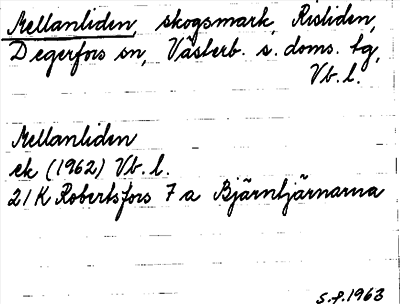 Mellanliden, skogsmark, Risliden,
Degerfors sn, Västerb. s. doms. tg,
Vb. l.
Mellanliden
ek (1962) Vb. l.
21 K Robertsfors 7 a Bjärntjärnarna
S.f. 1963